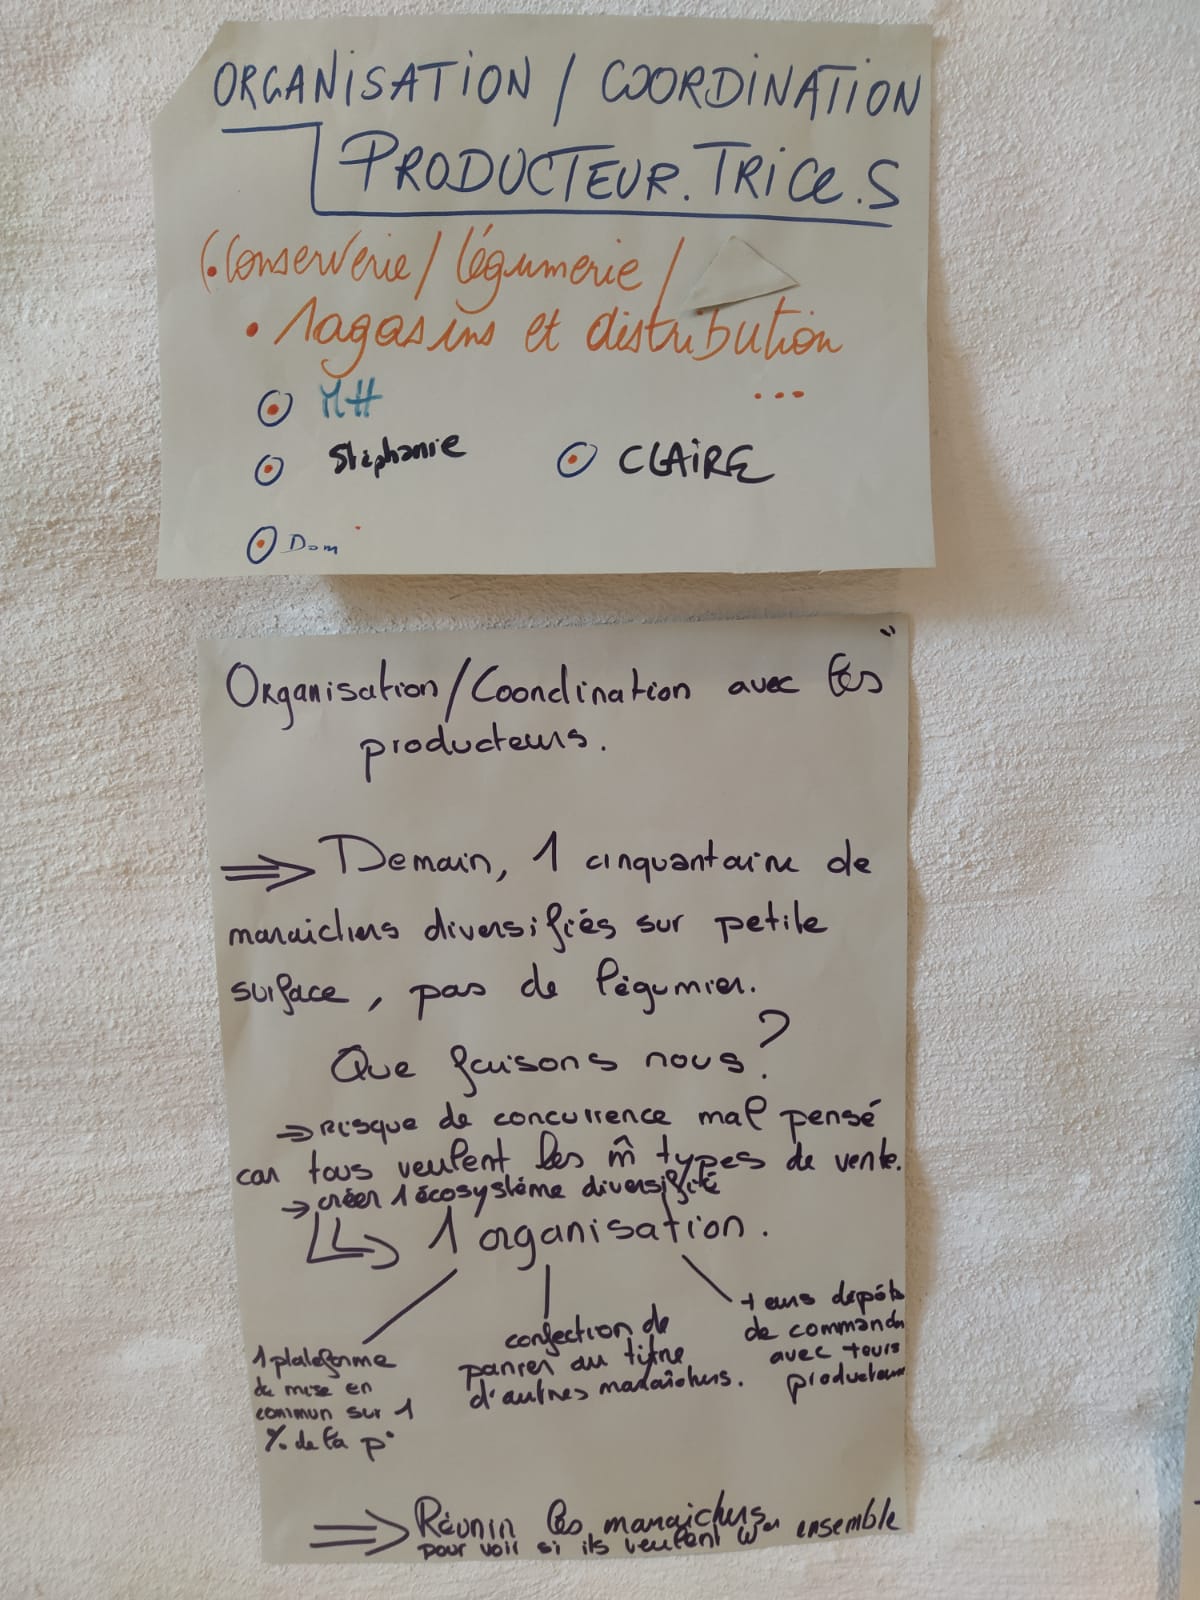 ORGANISATION / COORDINATION
PRODUCTEUR.TRICE.S
(.Conserverie / légumerie /
• Magasins et distribution
...
MH
Stéphanie
CLAIRE
Dom
Organisation/Coordination avec les
producteurs.
⇒ Demain, 1 cinquantaine de
maraichers diversifiés sur petite
surface, pas de légumier.
Que faisons nous ?
→ Risque de concurrence mal pensé
car tous veulent les m̂ types de vente.
→ créer 1 écosystème diversifité
↳ 1 organisation.
1 plateforme
de mise en
commun sur 1
% de la p°
confection de
panier au titre
d'autres maraîchers.
+ eurs dépôts
de commande
avec +eurs
producteurs
⇒ Réunir les maraichers
pour voir si ils veulent W er ensemble